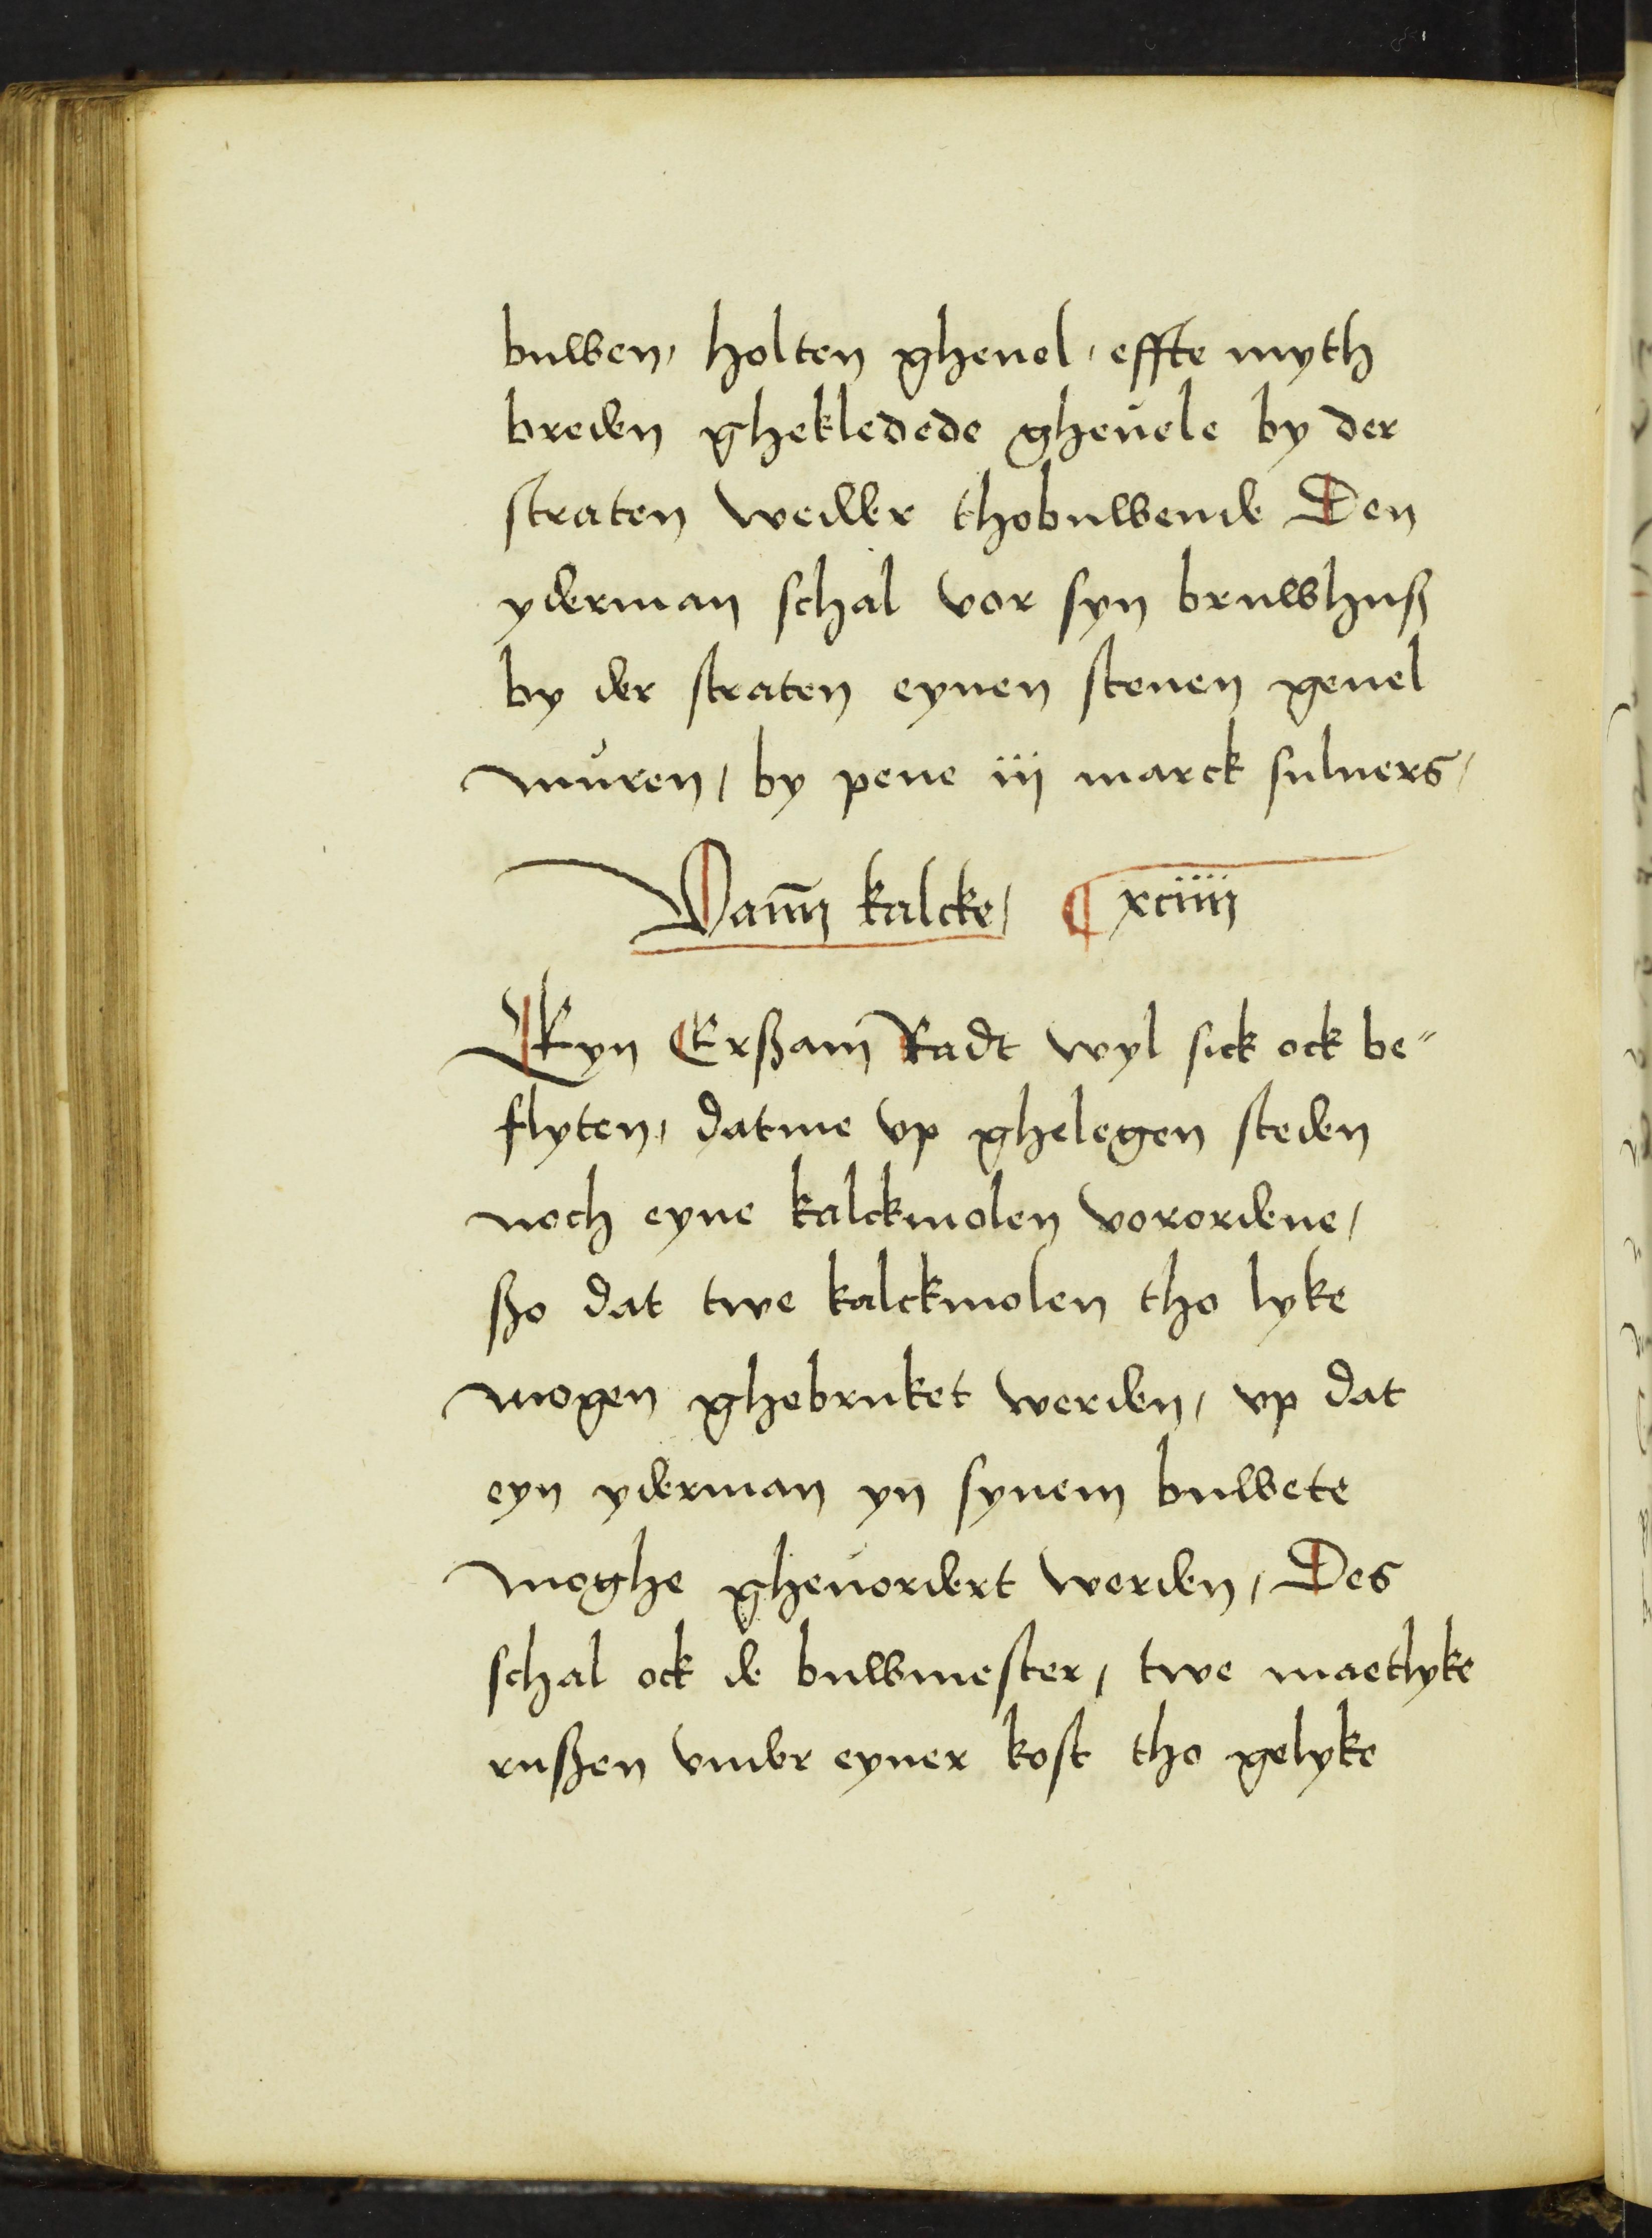 buwen, holten gheuel, effte myth
breden ghekledede gheuele by der
straten wedder thobuwende Den
yderman schal vor syn bruwhuß
by der straten eynen stenen geuel
muren, by pene iij marck suluers,
Vann kalcke, ¶ xciiii
Eyn Erßam Radt wyl sick ock be"
flyten, datme vp ghelegen steden
noch eyne kalckmolen vorordene,
ßo dat twe kalckmolen tho lyke
mogen ghebruket werden, vp dat
eyn yderman yn synem buwete
moghe gheuordert werden, Des
schal ock de buwmester, twe maetlyke
rußen vnder eyner kost tho gelyke